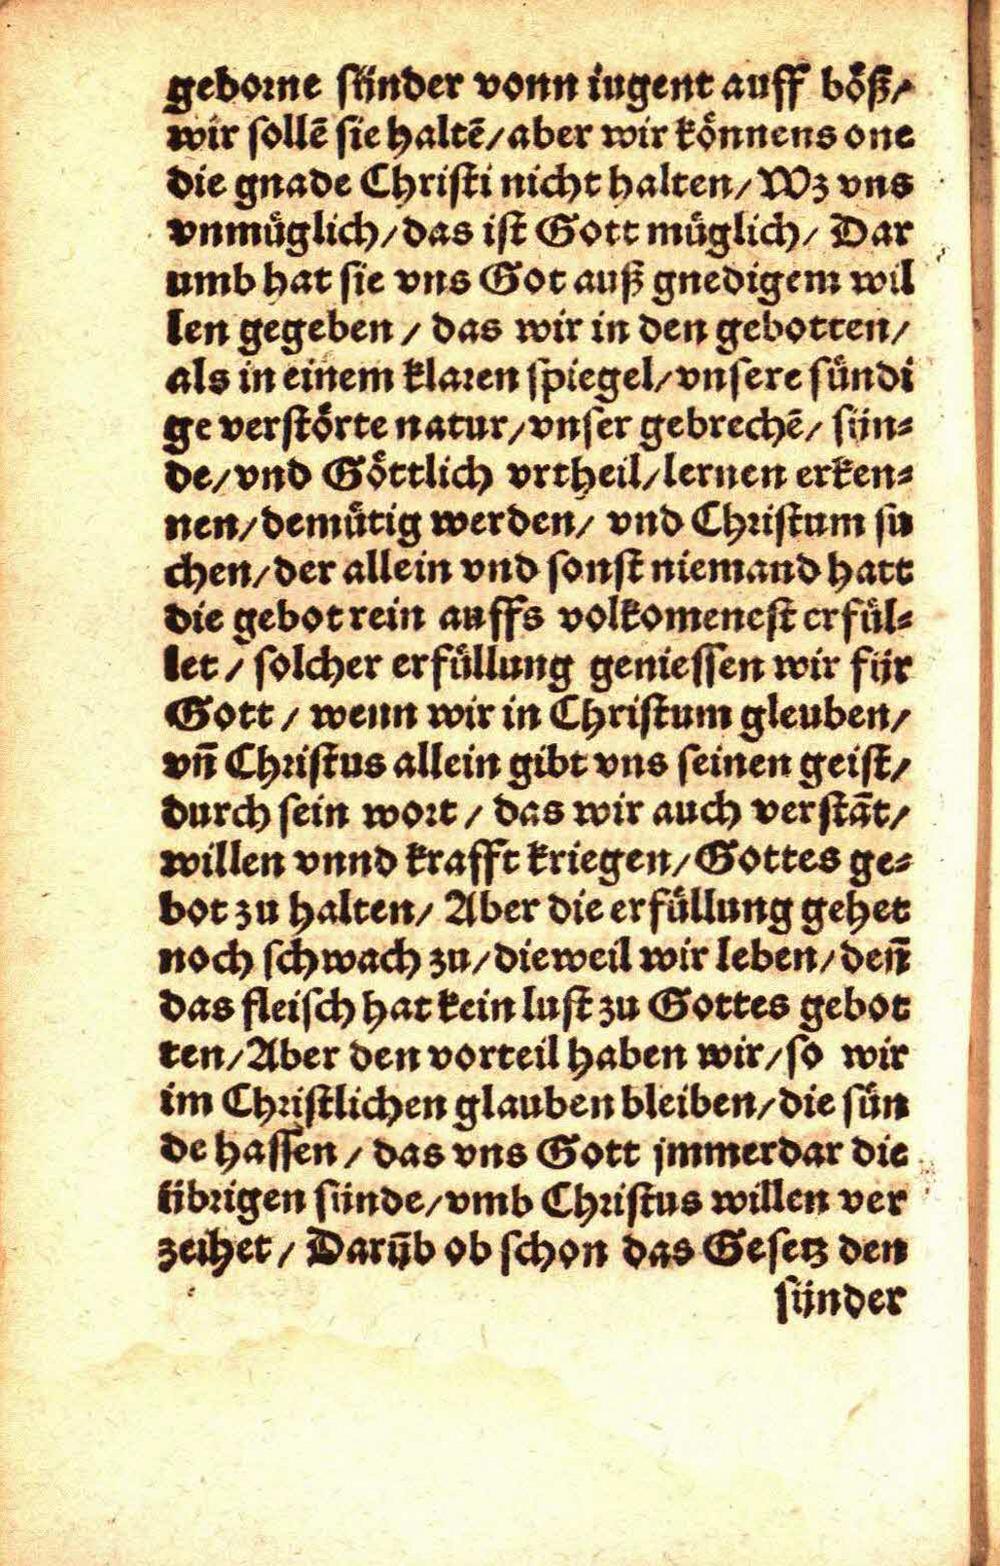 geborne sünder vonn iugent auff böß/
wir sollē sie haltē/aber wir können​s one
die gnade Christi nicht halten/Wz vns
vnmüglich/das ist Gott müglich/ Dar
umb hat sie vns Got auß gnedigem wil
len gegeben / das wir in den gebotten/
als in einem klaren spiegel/vnsere sündi
ge verstörte natur/vnser gebrechē/ sün⸗
de/vnd Göttlich vrtheil/lernen erken⸗
nen/demütig werden/ vnd Christum su
chen/der allein vnd sonst niemand hatt
die gebot rein auffs volkomenest erfül⸗
let / solcher erfüllung geniessen wir für
Gott / wenn wir in Christum gleuben/
vn̄ Christus allein gibt vns seinen geist/
durch sein wort / das wir auch verstāt/
willen vnnd krafft kriegen/Gottes ge⸗
bot zu halten/ Aber die erfüllung gehet
noch schwach zu/dieweil wir leben/den̄
das fleisch hat kein lust zu Gottes gebot
ten/Aber den vorteil haben wir/so wir
im Christlichen glauben bleiben/die sün
de hassen / das vns Gott jmmerdar die
übrigen sünde/vmb Christus willen ver
zeihet / Darūb ob schon das Gesetz den
sünder